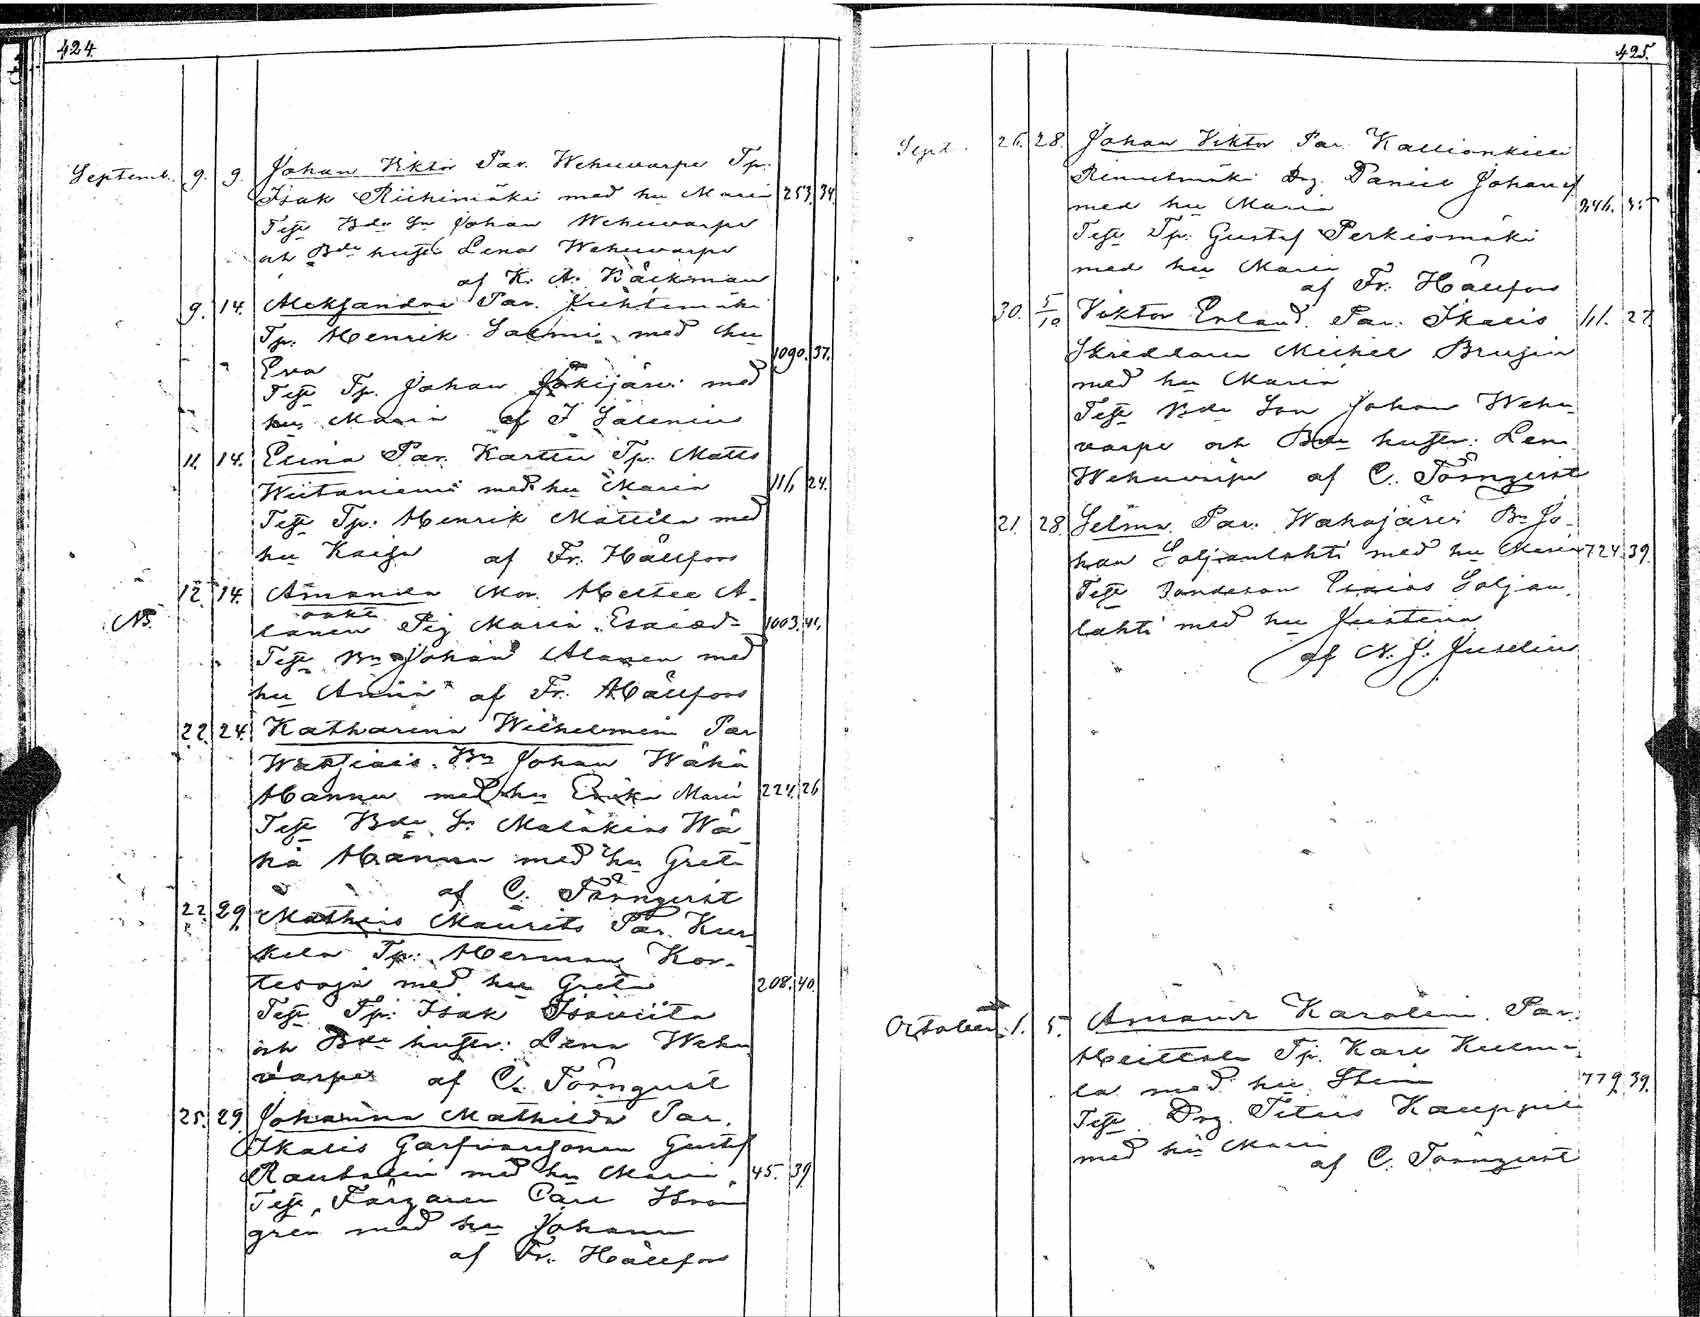 424.
Septemb. 9. 9. Johan Viktor Par. Wehuvarpe Tp.
Isak Riihimäki med hu Maria 253. 34
Test Bde Sn Johan Wehuvarpe
och Bde hustr. Lena Wehuvarpe
af K. A. Bäckman
9. 14. Aleksandra Par.
Tp. Henrik Salmi med hu
Eva 1090. 37.
Test Tp. Johan med
hu Maria af F Salenius
11. 14. Elina Par. Karttu Tp. Matts
Wiitaniemi med hu Maria 24.
Test Tp. Henrik Mattila med
hu Kaisa af Fr. Hällfors
12. 14. Amanda Mor. A-
NB. oäkt
lanen Pig Maria Esaiæd- 1003. 41.
Test Bn Johan Alanen med
hu Anna af Fr. Hällfors
22. 24. Katharina Wilhelmina Par
Bn Johan Wähä
Hannu med hu Erika Maria 224. 26
Test Bde Sn Malakias Wä-
hä Hannu med hu Greta
af C. Törnqvist
22. 29. Mathias Maurits Par. Kur-
kela Tp. Herman Kor-
tesoja med hu Greta 208. 40.
Test Tp. Isak Isoviita
och Bde hustr. Lena Wehu
varpe af C. Törnqvist
25. 29. Johanna Mathilda Par.
Ikalis Garfvaresonen Gustaf
med hu Maria 45. 39.
Test Färgaren Carl
grén med hu Johanna
af Fr. Hällfors
425.
Sept. 26. 28. Johan Viktor Par.
Drg. Daniel Johansf
med hu Maria 246. 35
Test Tp. Gustaf Perkiömäki
med hu Maria
af Fr. Hällfors
30. 5/10 Viktor Erland Par. Ikalis 27.
Skreddare Michel Brusin
med hu Maria
Test Bde Son Johan Wehu-
varpe och Bde hustr. Lena
Wehuvarpe af C. Törnqvist
21. 28. Selma Par. Wahojärvi Bn Jo-
han Soljanlahti med hu Maria 724. 39.
Test Bondeson Esaias Soljan-
lahti med hu Justina
af N. J. Juselius
October 1. 5. Karolina Par.
Heittola Tp. Karl Kulma-
la med hu Stina 779. 39.
Test Drg Titus Kauppila
med hu Maria
af C. Törnqvist